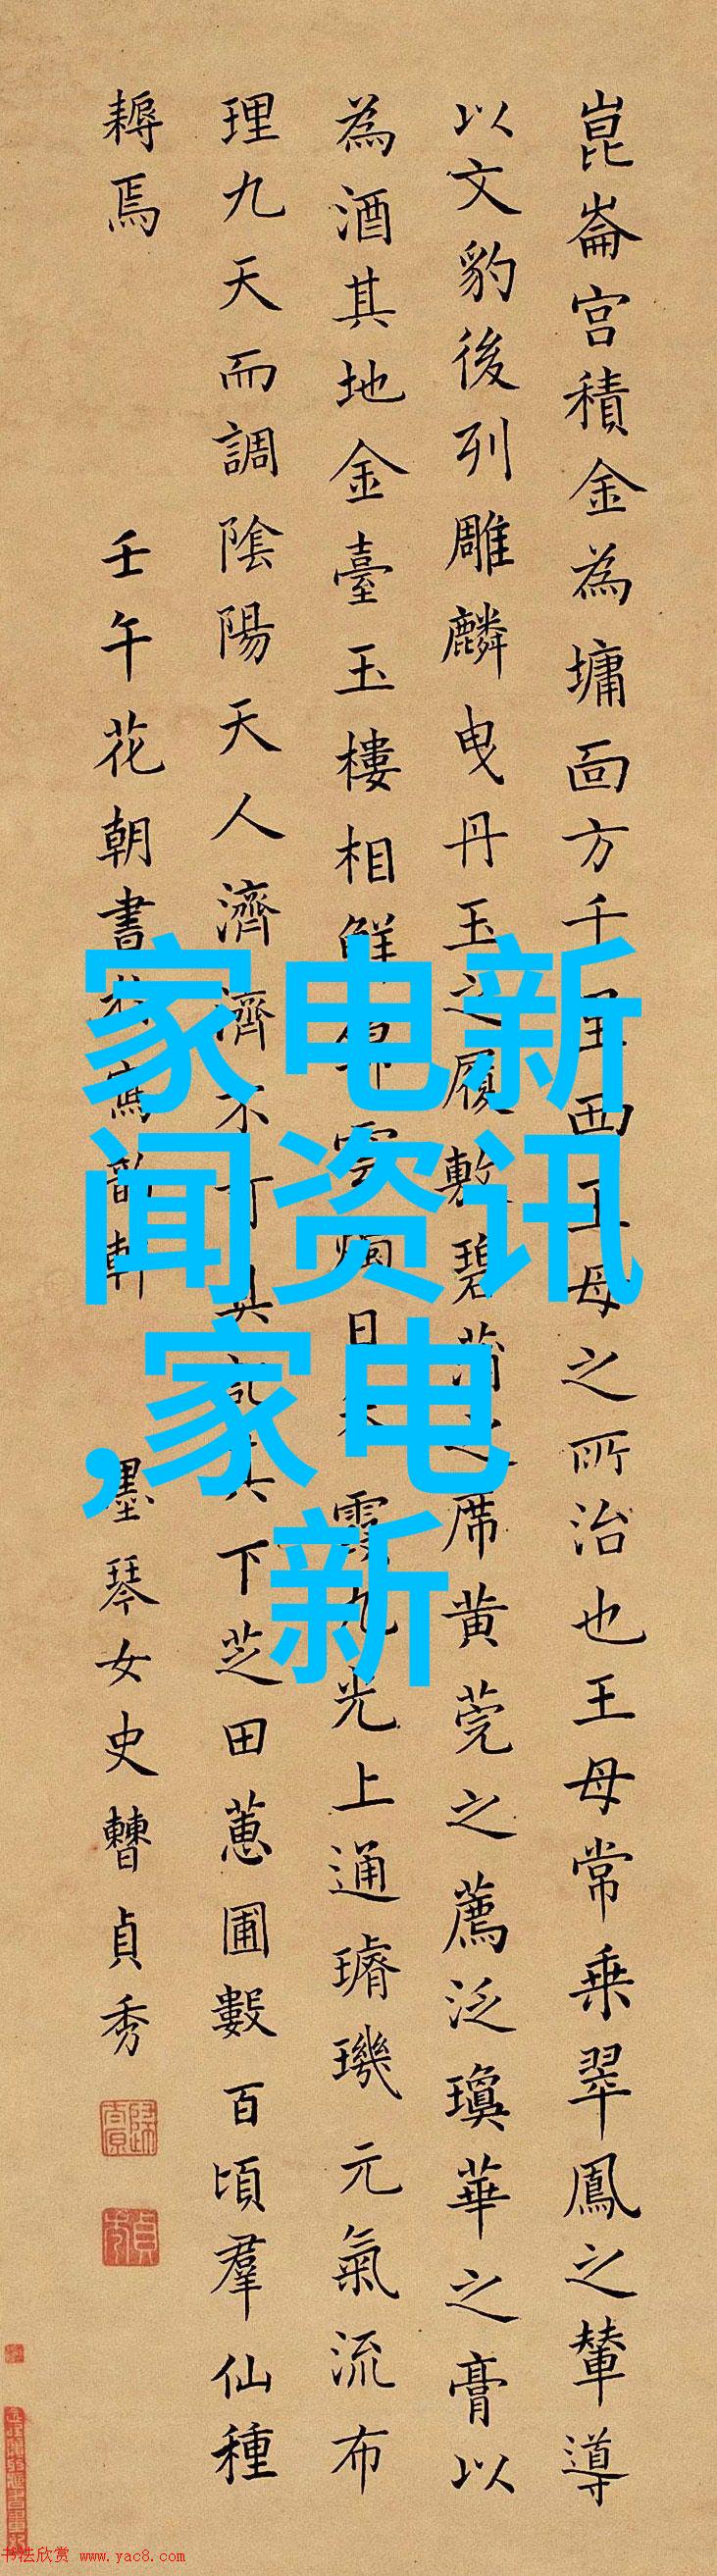 崑崙宫積金為墉面方千里西王母之所治也王母常乗翠鳳之輦導
以文豹後列雕麟曳丹玉之履敷碧蒲之席黄莞之薦泛瓊華之膏以
為酒其地金臺玉樓相鮮雲日霞九光上通璿璣元氣流布
理九天而調陰陽天人濟濟不可其下芝田蕙圃數百頃羣仙種
耨焉
壬午花朝書於寫韵軒
墨琴女史曹貞秀
家电新
闻资讯
,家电
新
书法欣赏 www.yac8.com